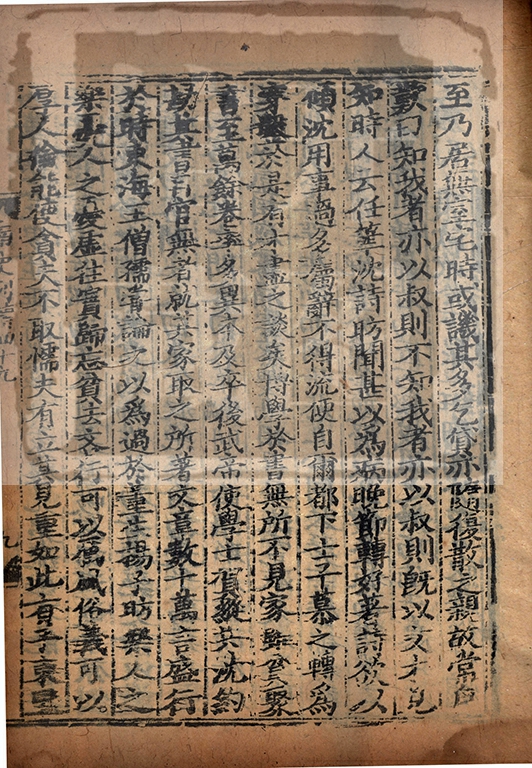 至乃居無室宅時或譏其多乞貸亦隨復散之親故常自
歎曰知我者亦以叔則不知我者亦以叔則旣以文才見
知時人云任筆沈詩昉聞甚以爲病晚節轉好著詩欲以
傾沈用事過多屬辭不得流便自爾都下士子慕之轉爲
穿鑿於是有才盡之談矣博學於書無所不見家雖貧聚
書至萬餘卷率多異本及卒後武帝使學士賀縱共沈約
勘其書目官無者就其家取之所著文章數十萬言盛行
於時東海王僧孺嘗論之以爲過於董生揚子昉樂人之
樂憂人之憂虛往實歸忘貧去吝行可以厲風俗義可以
厚人倫能使貪夫不取懦夫有立其見重如此有子東里